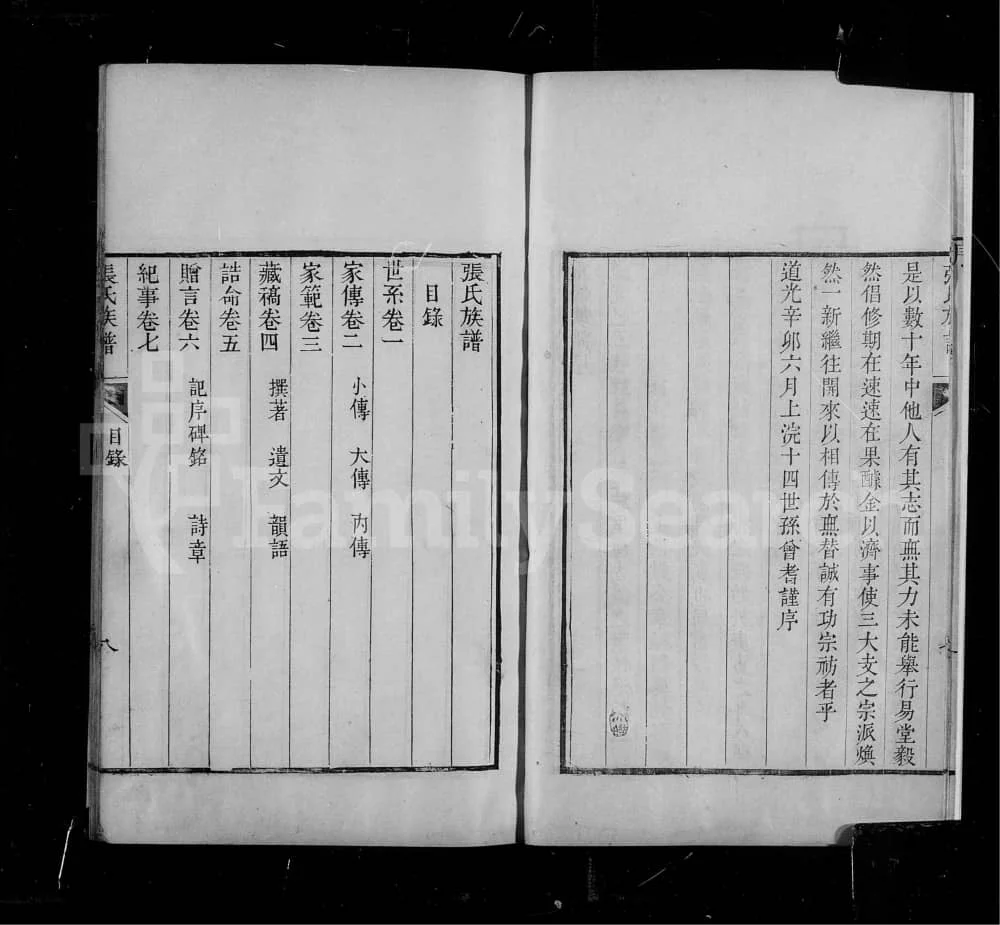 是以數十年中他人有其志而無其力未能舉行易堂毅
然倡修期在速速在果醵金以濟事使三大支之宗派煥
然一新繼往開來以相傳於無替誠有功宗祊者乎
道光辛卯六月上浣十四世孫曾耆謹序
張氏族譜
目錄
世系卷一
家傳卷二 小傳 大傳 內傳
家範卷三
藏稿卷四 撰著 遺文 韻語
誥命卷五
贈言卷六 記序碑銘 詩章
紀事卷七
張氏族譜 目錄 八
FamilySearch